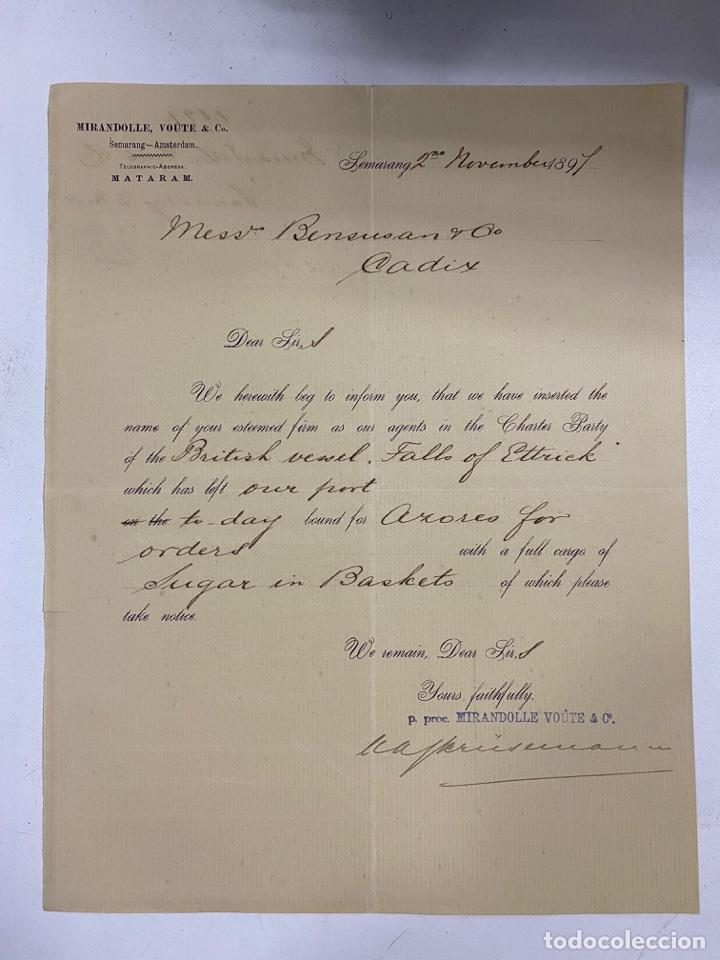 MIRANDOLLE, VOÛTE & Co.
Semarang—Amsterdam.
TELEGRAPHIC-ADDRESS:
MATARAM.
Semarang, 2no November 1897
Messrs Bensusan & Co
Cadix
Dear Sir,s
We herewith beg to inform you, that we have inserted the
name of your esteemed firm as our agents in the Charter Party
of the British vessel "Falls of Ettrick"
which has left our port
on the to-day bound for Azores for
orders with a full cargo of
Sugar in Baskets of which please
take notice.
We remain, Dear Sir,s
Yours faithfully.
p. proc. MIRANDOLLE VOÛTE & Co.
todocoleccion
todocoleccion.net